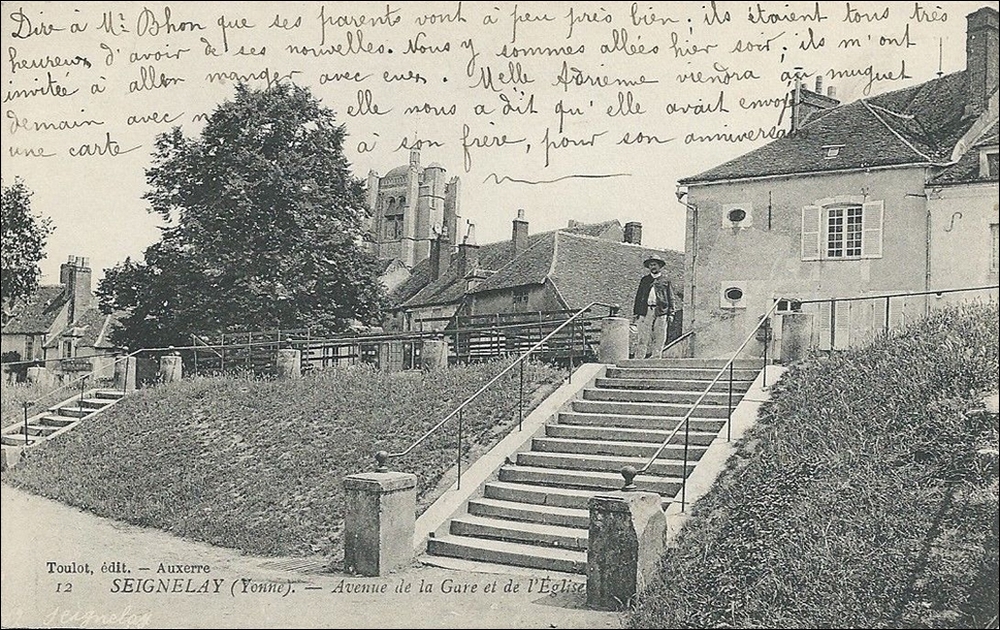 Dire à Mr Bhon que ses parents vont à peu près bien. ils étaient tous très
heureux d'avoir de ses nouvelles. Nous y sommes allées hier soir, ils m'ont
invitée à aller manger avec eux. Melle Adrienne viendra au muguet
demain avec elle nous a dit qu'elle avait envoyé
une carte à son frère, pour son anniversaire
Toulot, édit. — Auxerre
12 SEIGNELAY (Yonne). — Avenue de la Gare et de l'Église
seignelay